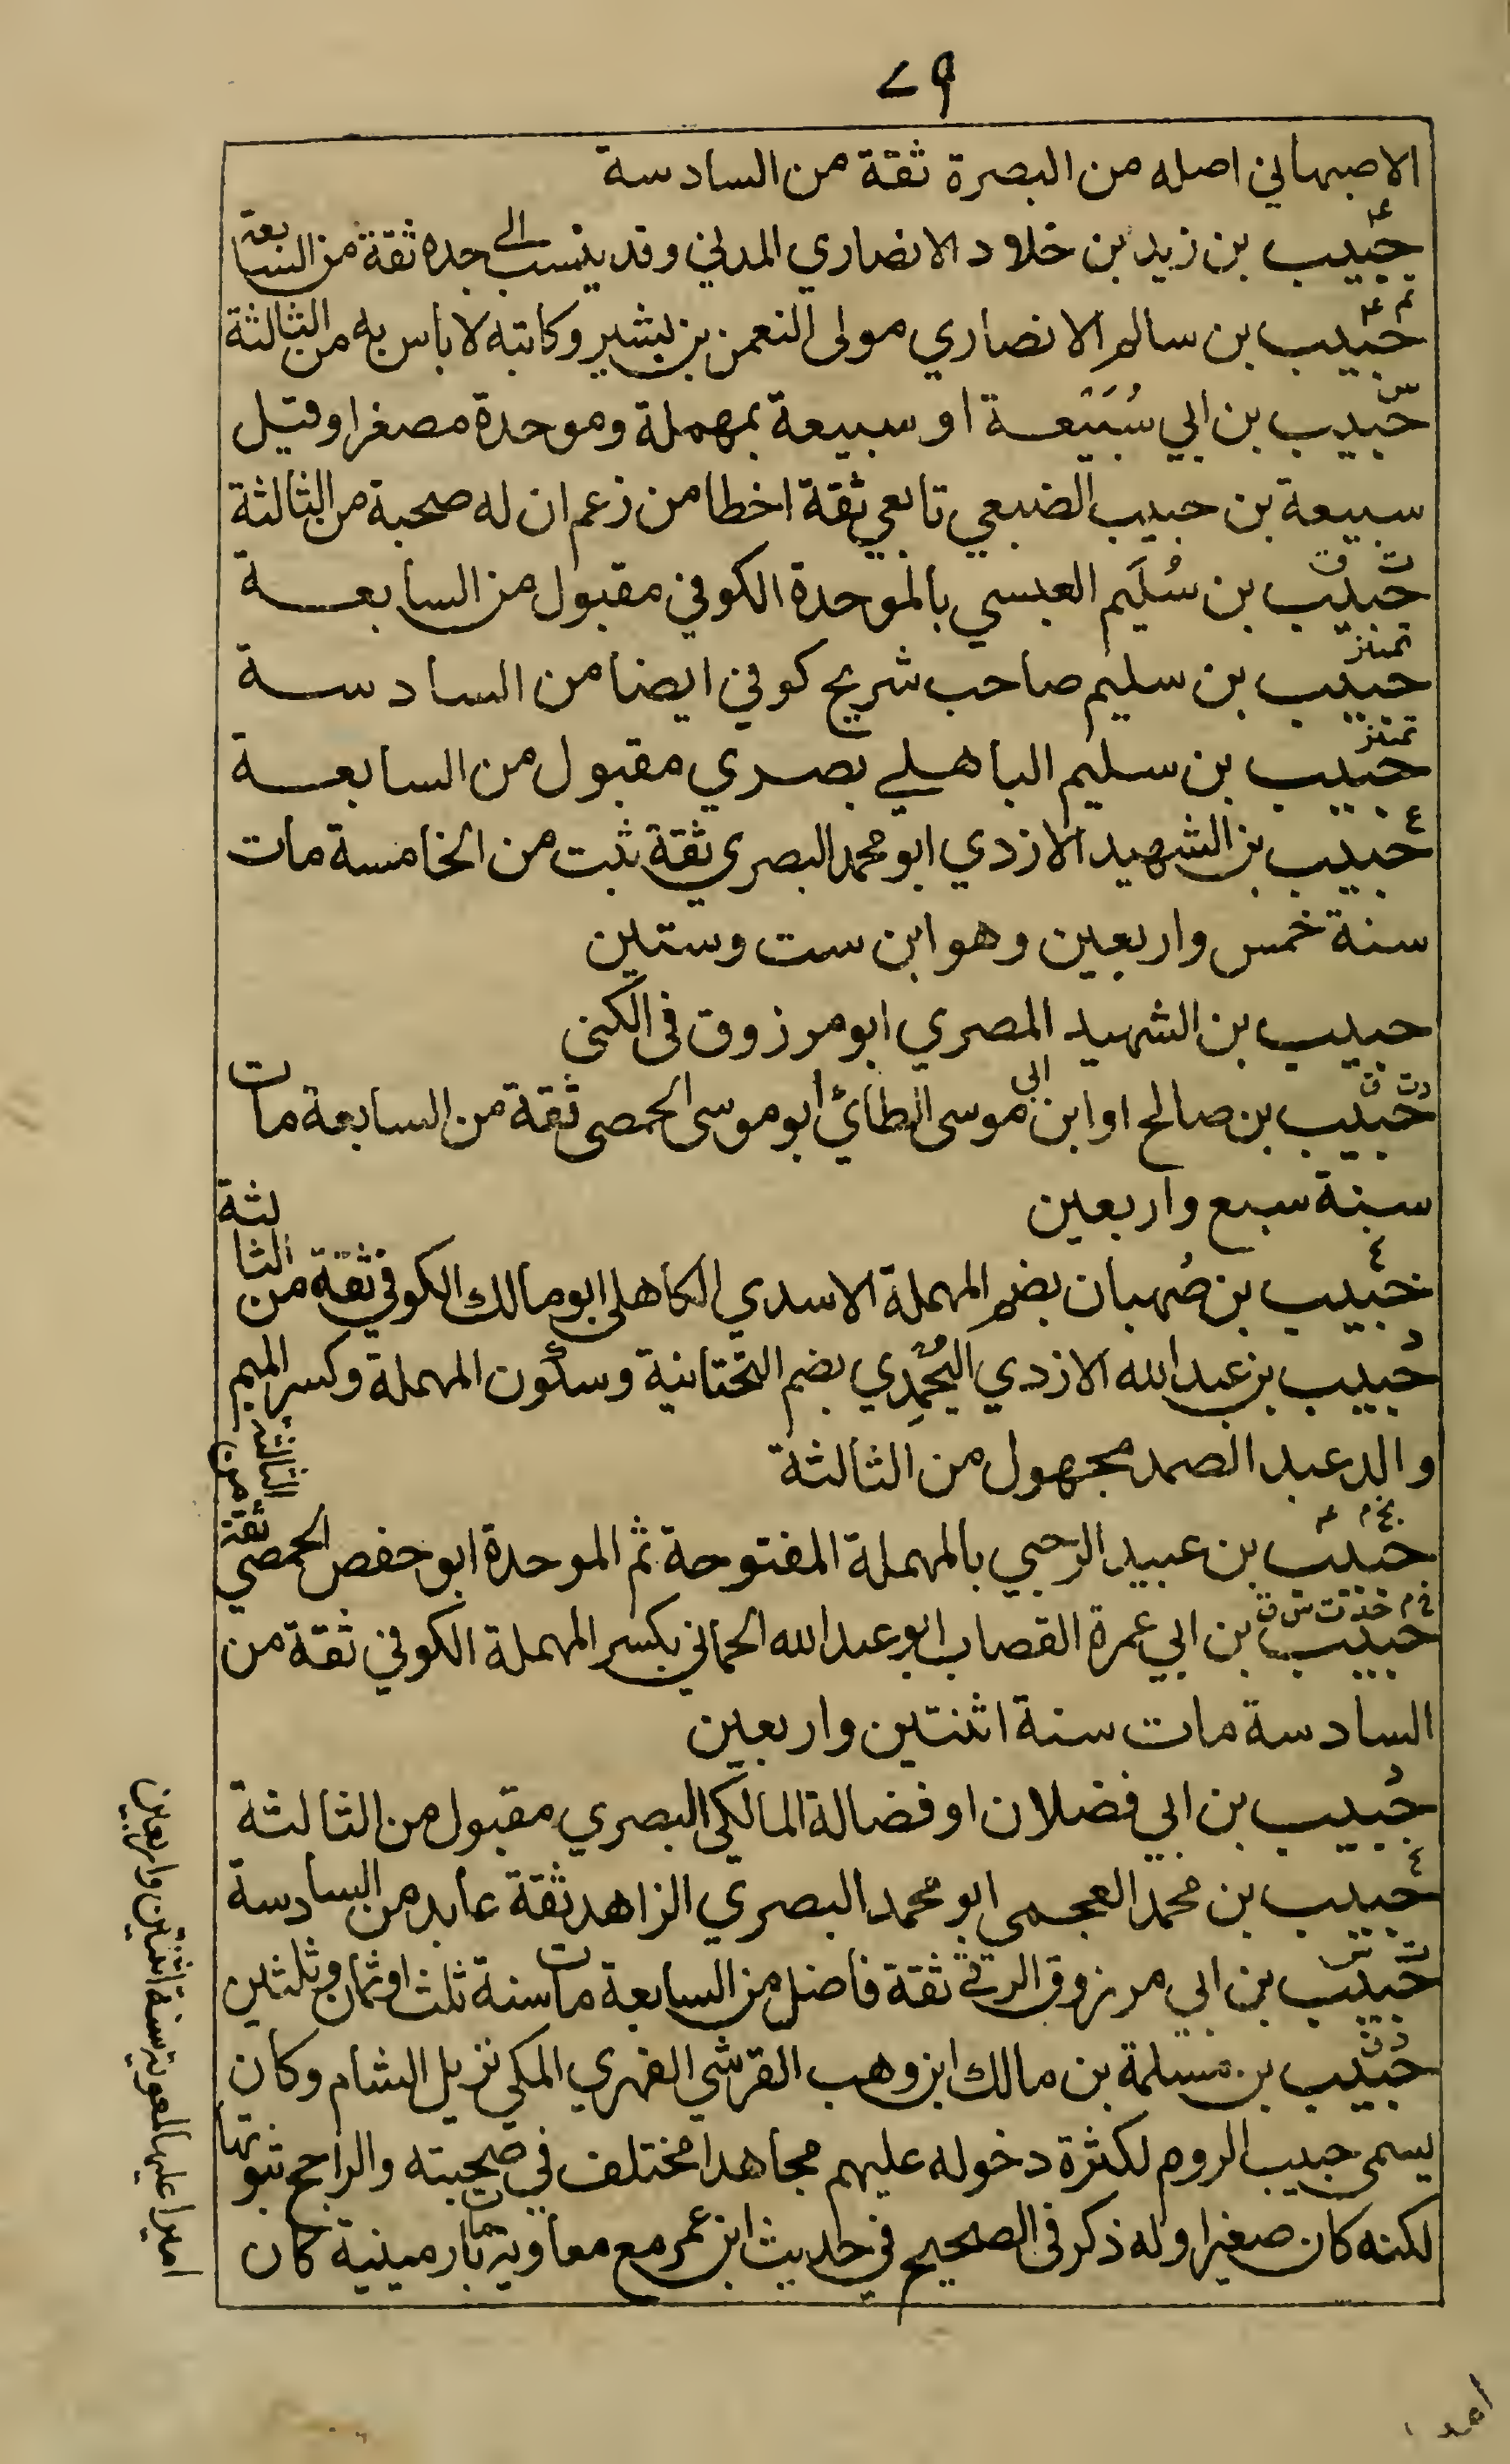 ٧٩
الاصبهاني اصله من البصرة ثقة من السادسة
عـ
حبيب بن زيد بن خلاد الانصاري المدني وقد ينسب الى جده ثقة من السابعة
م عـ
حبيب بن سالم الانصاري مولى النعمن بن بشير وكاتبه لا باس به من الثالثة
س
حبيب بن ابي سُبَيعة او سبيعة بمهملة وموحدة مصغرا وقيل
سبيعة بن حبيب الضبعي تابعي ثقة اخطا من زعم ان له صحبة من الثالثة
ت ق
حبيب بن سُلَيم العبسي بالموحدة الكوفي مقبول من السابعة
تمييز
حبيب بن سليم صاحب شريح كوفي ايضا من السادسة
تمييز
حبيب بن سليم الباهلي بصري مقبول من السابعة
ع
حبيب بن الشهيد الازدي ابو محمد البصري ثقة ثبت من الخامسة مات
سنة خمس واربعين وهو ابن ست وستين
حبيب بن الشهيد المصري ابو مرزوق في الكنى
د ت ق
حبيب بن صالح او ابن ابي موسى الطائي ابو موسى الحمصي ثقة من السابعة مات
سنة سبع واربعين
٤
حبيب بن صُهبان بضم المهملة الاسدي الكاهلي ابو مالك الكوفي ثقة من الثالثة
د
حبيب بن عبد الله الازدي اليُحْمِدي بضم التحتانية وسكون المهملة وكسر الميم
والد عبد الصمد مجهول من الثالثة
بخ م عـ
حبيب بن عبيد الرحبي بالمهملة المفتوحة ثم الموحدة ابو حفص الحمصي ثقة من الثالثة
م خد ت س ق
حبيب بن ابي عمرة القصاب ابو عبد الله الحماني بكسر المهملة الكوفي ثقة من
السادسة مات سنة اثنتين واربعين
د
حبيب بن ابي فضلان او فضالة المالكي البصري مقبول من الثالثة
حبيب بن محمد العجمي ابو محمد البصري الزاهد ثقة عابد من السادسة
حبيب بن ابي مرزوق الرقي ثقة فاضل من السابعة مات سنة ثلث او ثمان وثلثين
د ق
حبيب بن مسلمة بن مالك ابن وهب القرشي الفهري المكي نزيل الشام وكان
يسمى حبيب الروم لكثرة دخوله عليهم مجاهدا مختلف في صحبته والراجح ثبوتها
لكنه كان صغيرا وله ذكر في الصحيح في حديث ابن عمر مع معاوية مات بارمينية كان
اميرا عليها لمعوية سنة اثنتين واربعين